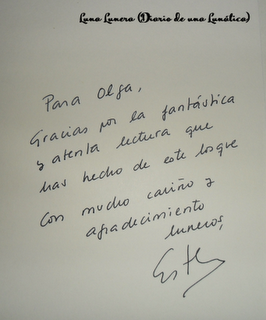 Luna Lunera (Diario de una Lunática)
Para Olga,
Gracias por la fantástica
y atenta lectura que
has hecho de este bosque
con mucho cariño y
agradecimiento
luneros,
Esth